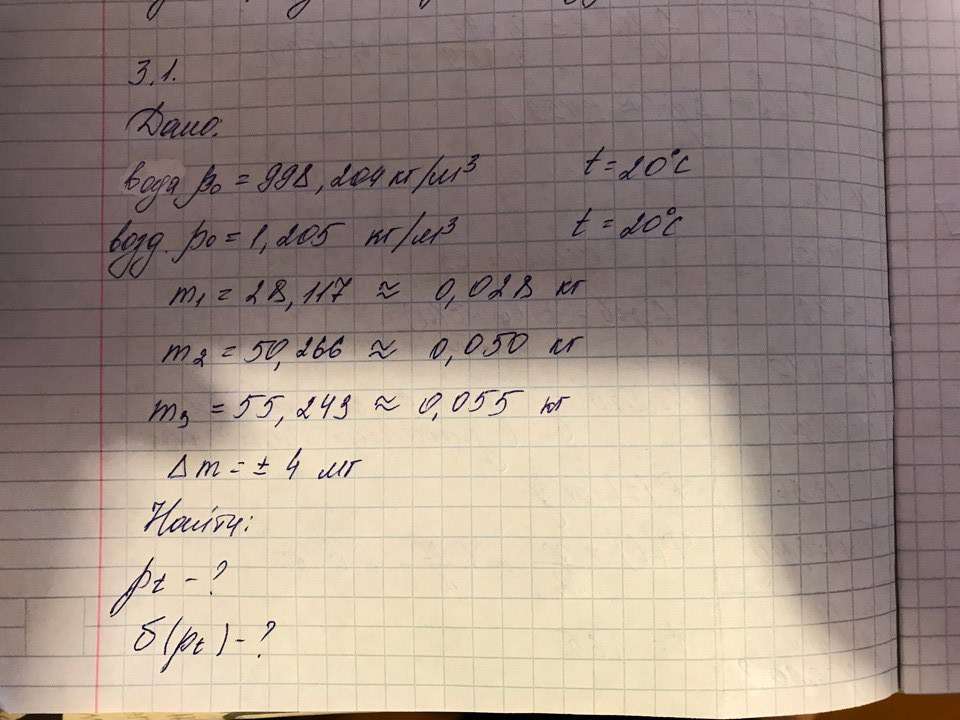 3.1.
Дано:
вода ρ₀ = 998,204 кг/м³ t = 20°C
возд. ρ₀ = 1,205 кг/м³ t = 20°C
m₁ = 28,117 ≈ 0,028 кг
m₂ = 50,266 ≈ 0,050 кг
m₃ = 55,243 ≈ 0,055 кг
Δm = ± 4 мг
Найти:
ρt - ?
δ(ρt) - ?